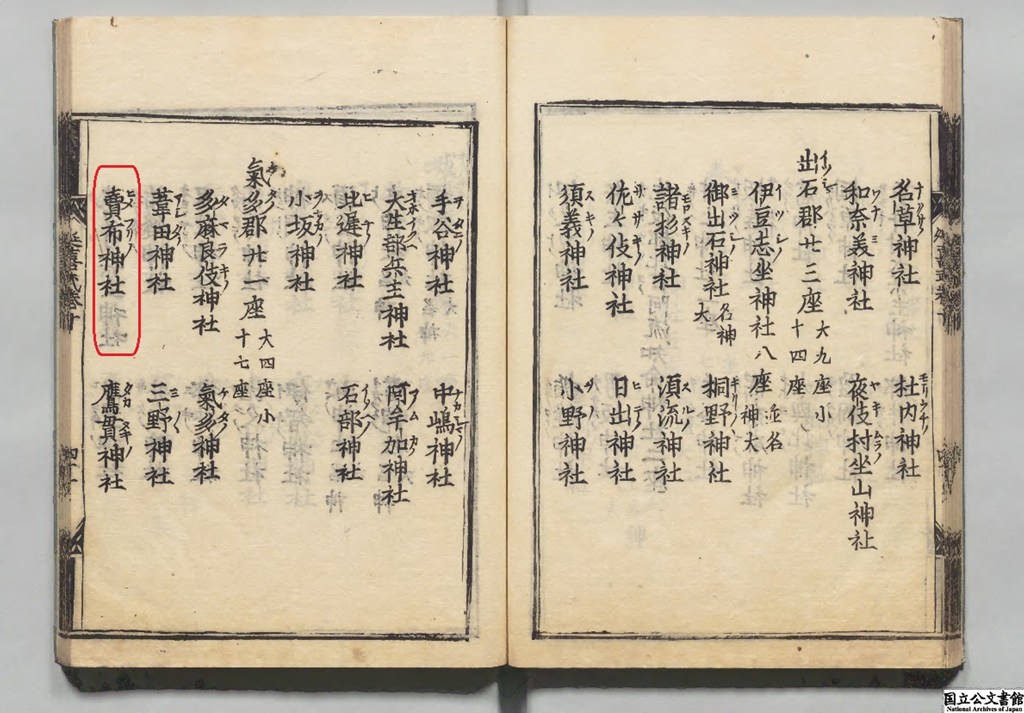 名草神社 杜内神社
和奈美神社 夜伎村坐山神社
出石郡廿三座 大九座小十四座
伊豆志坐神社八座 並名神大
御出石神社 名神大 桐野神社
諸杉神社 須流神社
佐々伎神社 日出神社
須義神社 小野神社
手谷神社 中嶋神社
大生部兵主神社 阿牟加神社
比遅神社 石部神社
小坂神社
氣多郡廿一座 大四座小十七座
多麻良伎神社 氣多神社
葦田神社 三野神社
賣布神社 鷹貫神社
国立公文書館
National Archives of Japan